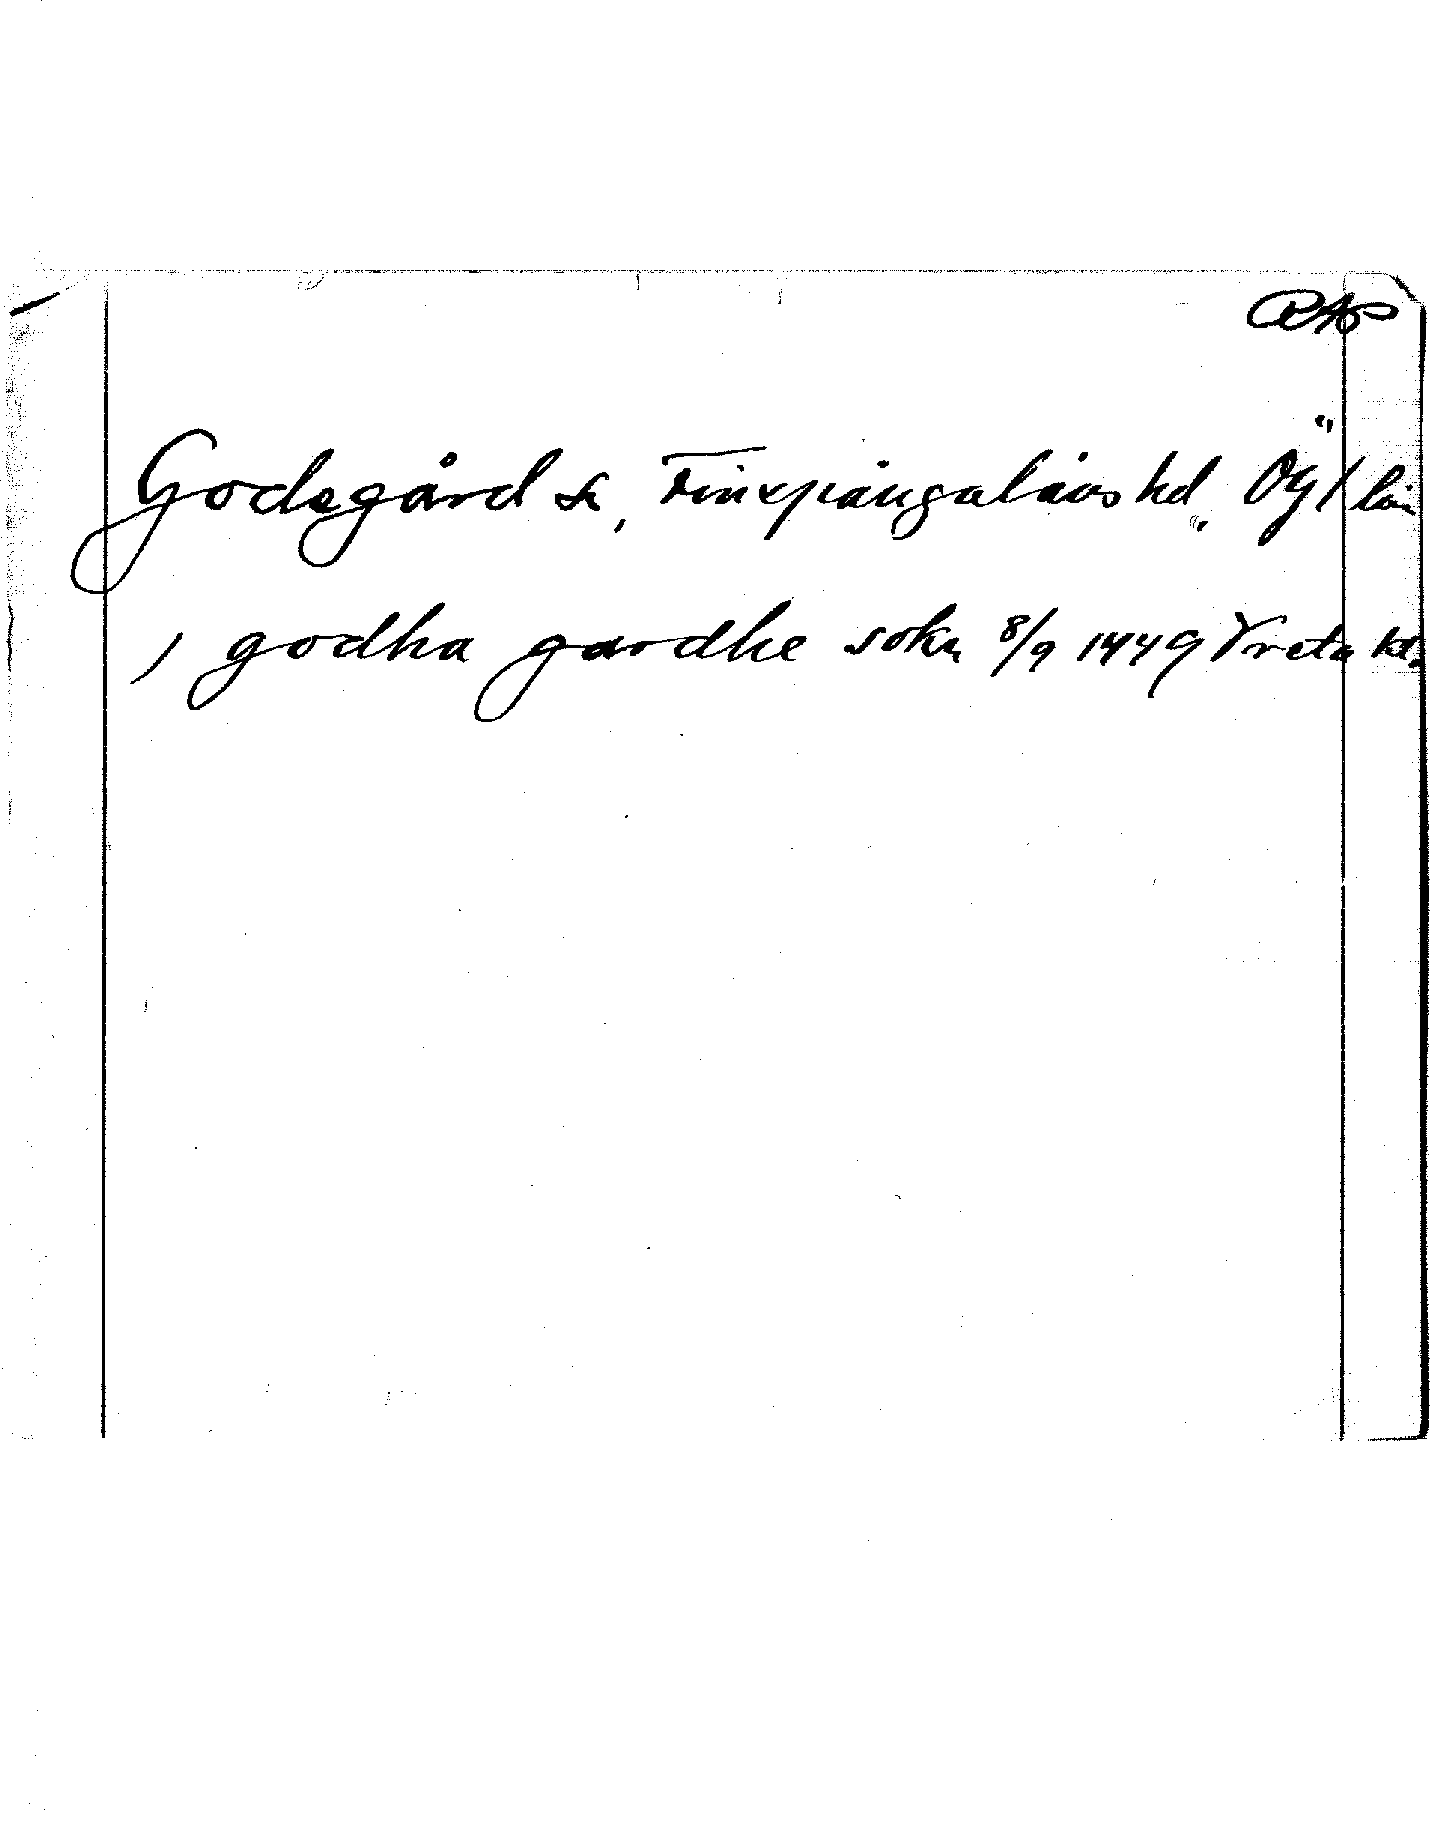 RAP
Godegård sn, Finspångaläns hd, Ögl län
j godha gardhe sokn 8/9 1449 Vreta kl.